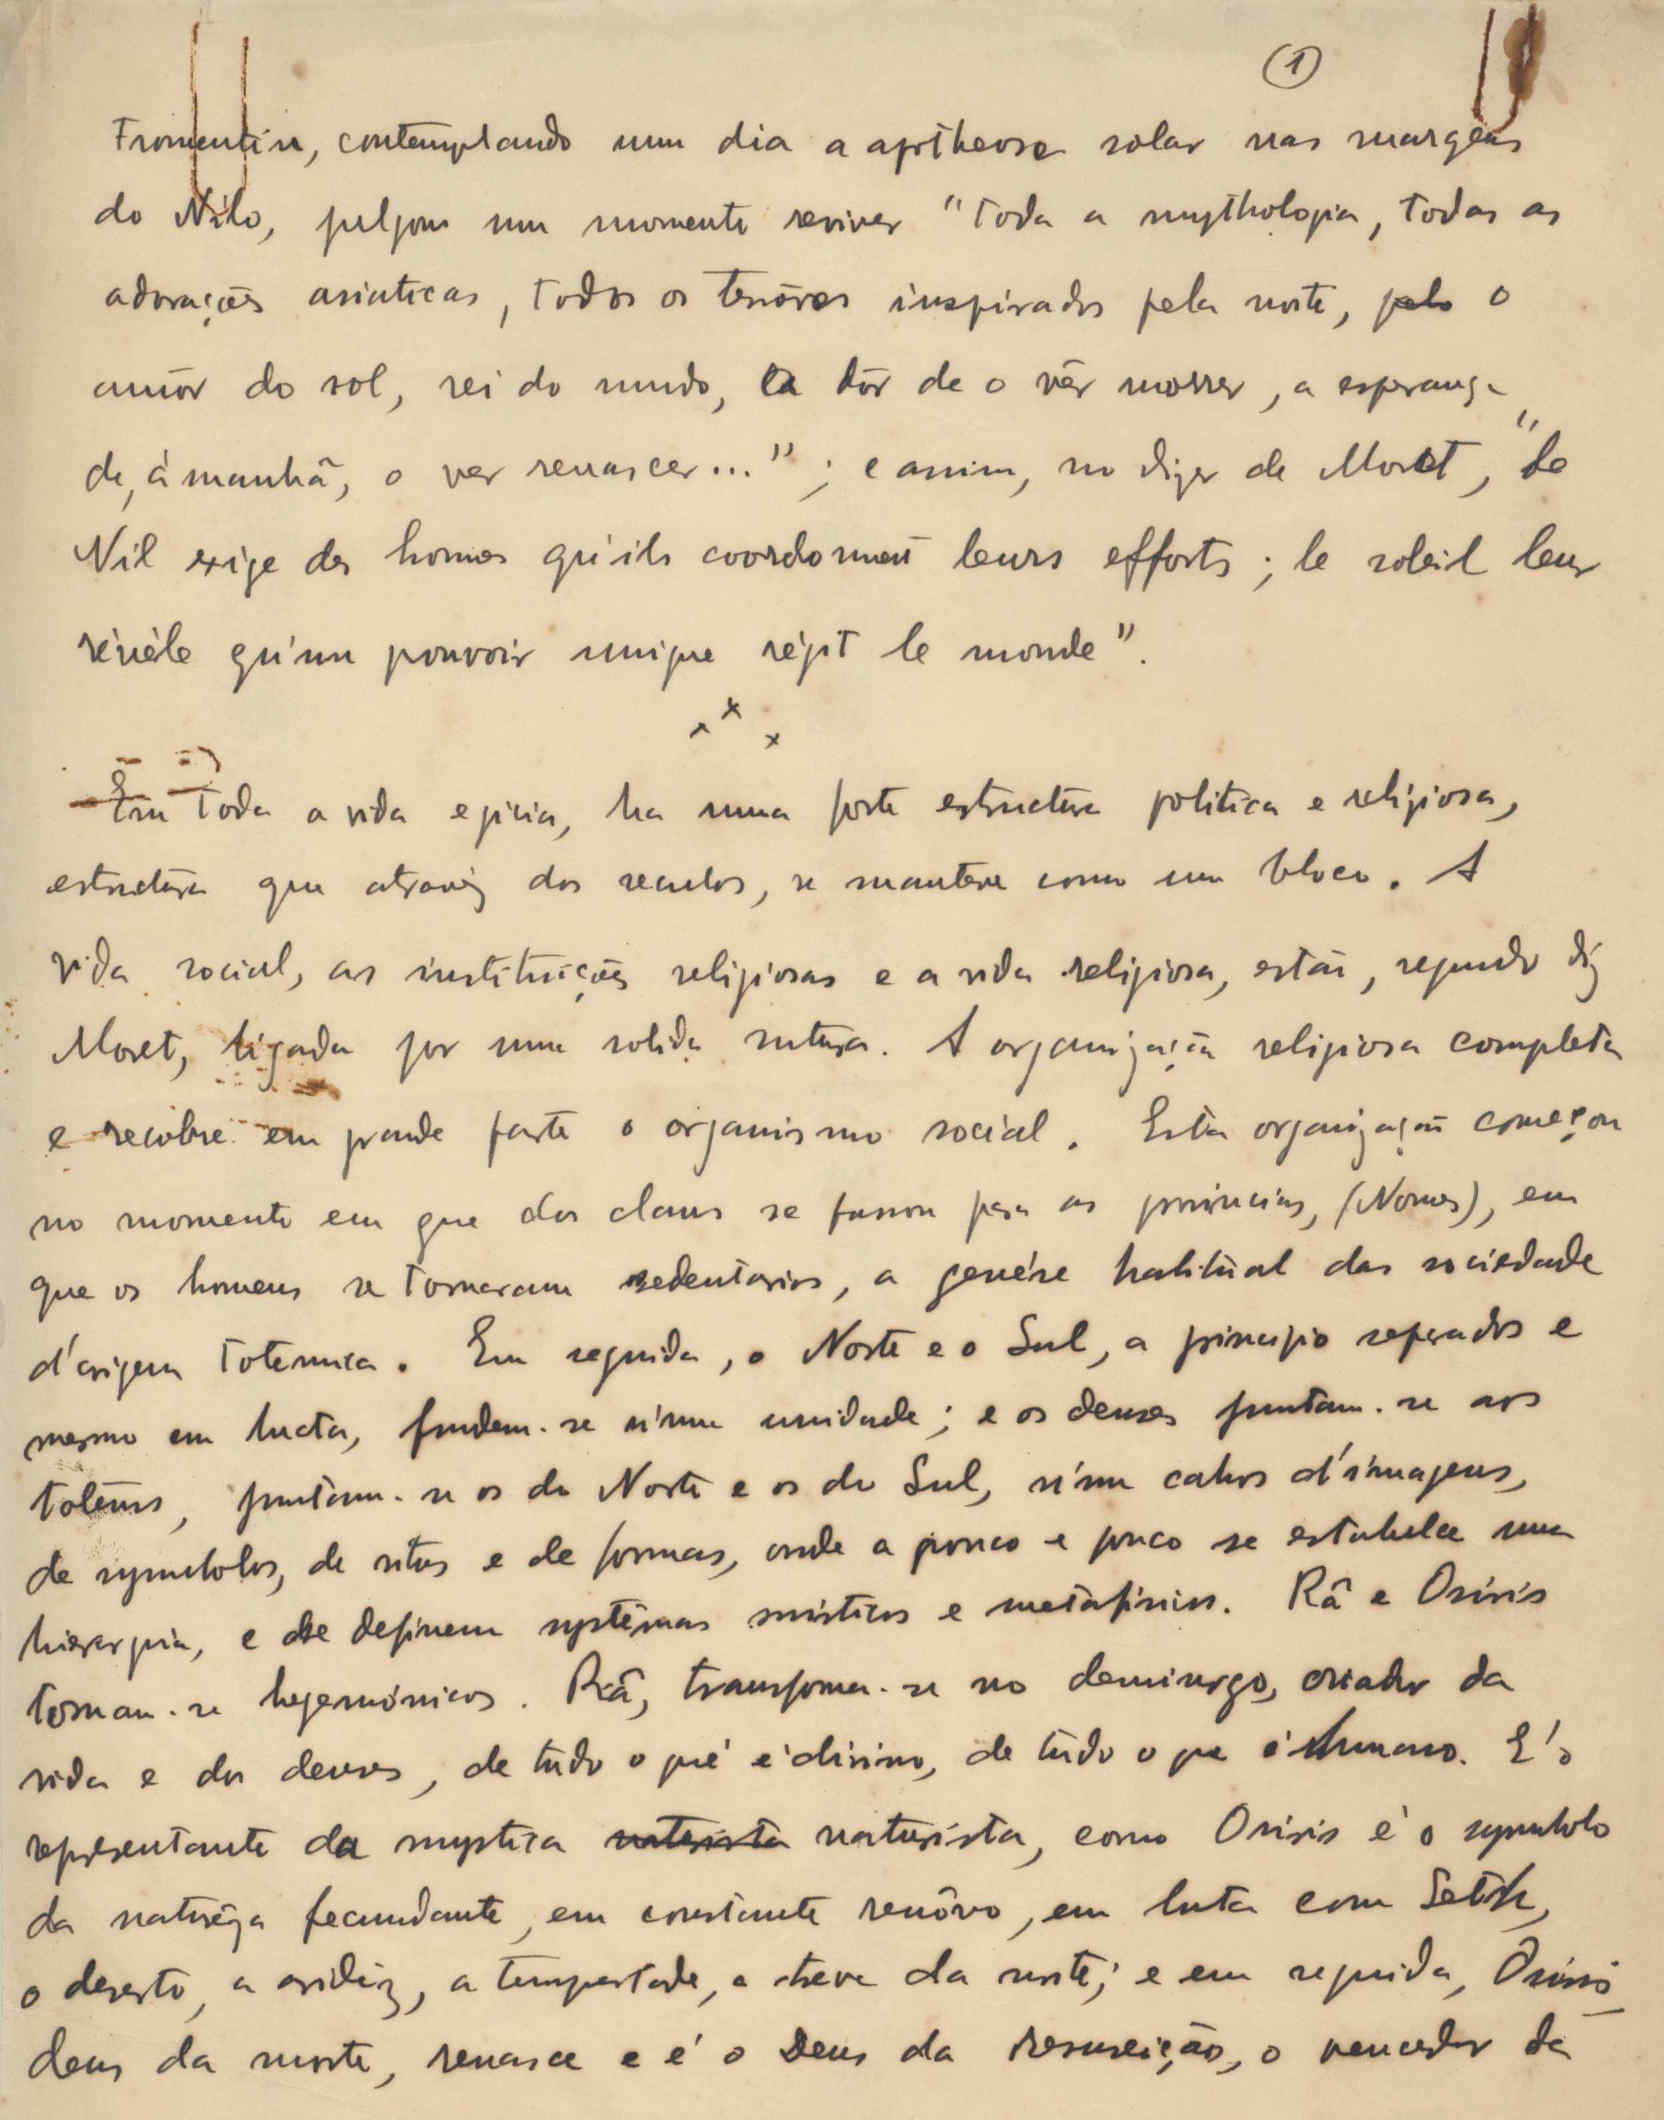 1
Fromentin, contemplando um dia a apotheose solar nas margens
do Nilo, julgou um momento reviver "toda a mythologia, todas as
adorações asiaticas, todos os terrôres inspirados pela noite, pelo o
amôr do sol, rei do mundo, a dôr de o vêr morrer, a esperança
de, ámanhã, o ver renascer..."; e assim, no dizer de Moret, "le
Nil exige des homes qu'ils coordonnent leurs efforts; le soleil leur
révèle qu'un pouvoir unique régit le monde".
x x x
Em toda a vida egicia, ha uma forte estructura politica e religiosa,
estructura que atravéz dos seculos, se manteve como um bloco. A
vida social, as instituições religiosas e a vida religiosa, estão, segundo diz
Moret, ligada por uma solida sutura. A organização religiosa completa
e recobre em grande parte o organismo social. Esta organização começou
no momento em que dos clans se passou para as provincias, (Nomes), em
que os homens se tornaram sedentarios, a genése habitual das sociedade
d'origem totemica. Em seguida, o Norte e o Sul, a principio separados e
mesmo em lucta, fundem-se n'uma unidade; e os deuses juntam-se aos
totens, juntam-se os do Norte e os do Sul, n'um cahos d'imagens,
de symbolos, de ritos e de formas, onde a pouco e pouco se estabelece uma
hierarquia, e se definem systêmas misticos e metafisicos. Râ e Osiris
tornam-se hegemónicos. Râ, transforma-se no demiurgo, criador da
vida e dos deuses, de tudo o qué é divino, de tudo o que é humano. E' o
representante da mystica naturista naturista, como Osiris é o symbolo
da naturêza fecundante, em constante renôvo, em luta com Seth,
o deserto, a aridêz, a tempestade, a treva da noite; e em seguida, Osiris
deus da morte, renasce e é o Deus da resurreição, o vencedor da